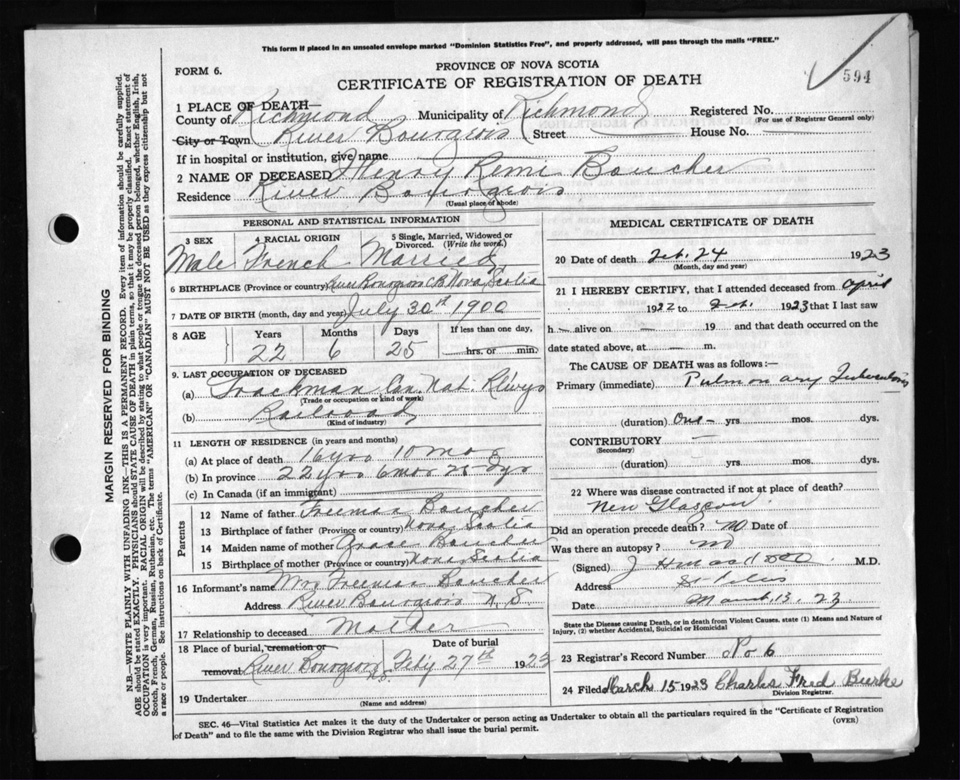 This form if placed in an unsealed envelope marked "Dominion Statistics Free", and properly addressed, will pass through the mails "FREE."
594
PROVINCE OF NOVA SCOTIA
FORM 6.
CERTIFICATE OF REGISTRATION OF DEATH
1 PLACE OF DEATH—
County of Richmond Municipality of Richmond Registered No.
(For use of Registrar General only)
City or Town River Bourgeois Street House No.
If in hospital or institution, give name
2 NAME OF DECEASED Henry Remi Boucher
Residence River Bourgeois
(Usual place of abode)
PERSONAL AND STATISTICAL INFORMATION
3 SEX 4 RACIAL ORIGIN 5 Single, Married, Widowed or Divorced. (Write the word.)
Male French Married
6 BIRTHPLACE (Province or country) River Bourgeois C B Nova Scotia
7 DATE OF BIRTH (month, day and year) July 30th 1900
8 AGE Years Months Days If less than one day,
22 6 25 hrs. or min.
9. LAST OCCUPATION OF DECEASED
(a) Trackman Can. Nat. Rlwys
(Trade or occupation or kind of work)
(b) Railroad
(Kind of industry)
11 LENGTH OF RESIDENCE (in years and months)
(a) At place of death 16 yrs 10 mos
(b) In province 22 yrs 6 mos 25 dys
(c) In Canada (if an immigrant)
Parents
12 Name of father Freeman Boucher
13 Birthplace of father (Province or country) Nova Scotia
14 Maiden name of mother Grace Boucher
15 Birthplace of mother (Province or country) Nova Scotia
16 Informant's name Mrs Freeman Boucher
Address River Bourgeois N. S.
17 Relationship to deceased Mother
18 Place of burial, cremation or Date of burial
removal River Bourgeois N.S. Feb'y 27th 1923
19 Undertaker
(Name and address)
MEDICAL CERTIFICATE OF DEATH
20 Date of death Feb. 24 1923
(Month, day and year)
21 I HEREBY CERTIFY, that I attended deceased from April
1922 to Feb. 1923 that I last saw
h alive on 19 and that death occurred on the
date stated above, at m.
The CAUSE OF DEATH was as follows:—
Primary (immediate) Pulmonary Tuberculosis
(duration) One yrs mos. dys.
CONTRIBUTORY
(Secondary)
(duration) yrs. mos. dys.
22 Where was disease contracted if not at place of death?
New Glasgow
Did an operation precede death? no Date of
Was there an autopsy? no
(Signed) J H M.D.
Address St Peters
Date March 13. 23
State the Disease causing Death, or in death from Violent Causes, state (1) Means and Nature of Injury, (2) whether Accidental, Suicidal or Homicidal
23 Registrar's Record Number No 6
24 Filed March 15 1923 Charles Fred Burke
Division Registrar.
SEC. 46—Vital Statistics Act makes it the duty of the Undertaker or person acting as Undertaker to obtain all the particulars required in the "Certificate of Registration
of Death" and to file the same with the Division Registrar who shall issue the burial permit.
(OVER)
MARGIN RESERVED FOR BINDING
N.B.—WRITE PLAINLY WITH UNFADING INK—THIS IS A PERMANENT RECORD. Every item of information should be carefully supplied.
AGE should be stated EXACTLY. PHYSICIANS should STATE CAUSE OF DEATH in plain terms, so that it may be properly classified. Exact statement of
OCCUPATION is very important. RACIAL ORIGIN will be described by stating to what people or tongue the deceased person belonged, whether English, Irish,
Scotch, French, German, Russian, Ruthenian, etc. The terms "AMERICAN" or "CANADIAN" MUST NOT BE USED as they express citizenship but not
a race or people. See instructions on back of Certificate.